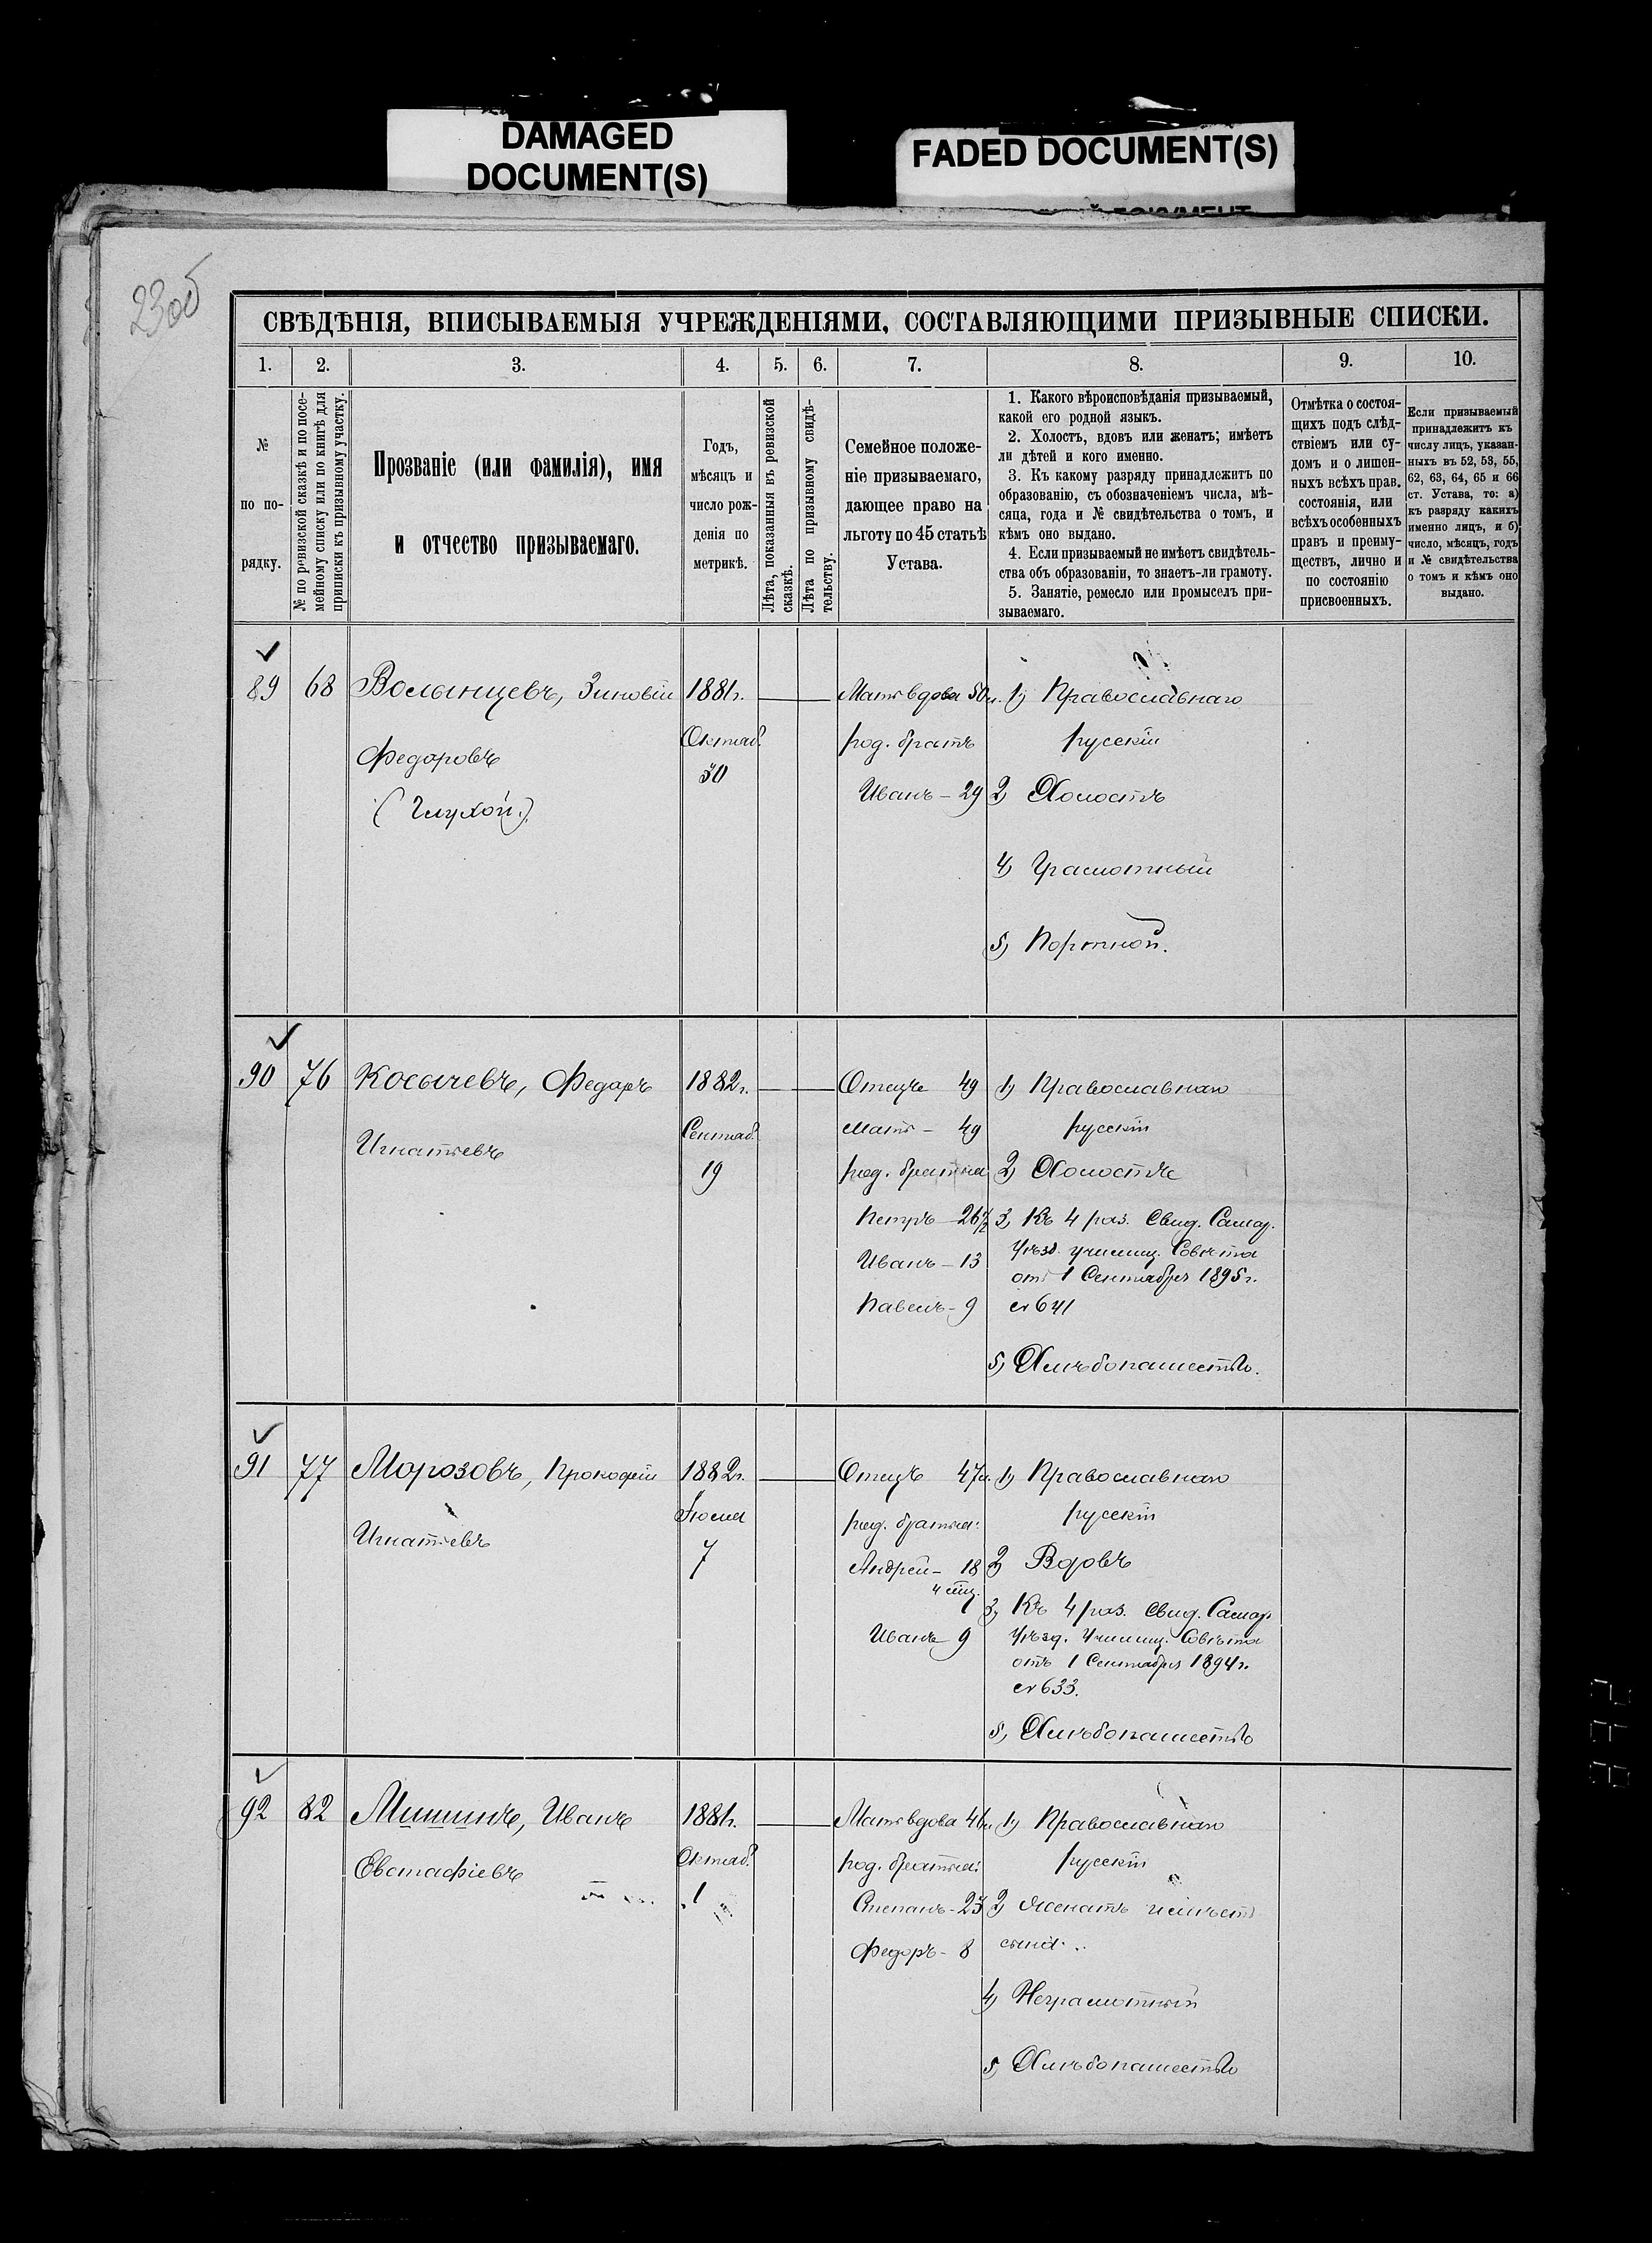 DAMAGED
DOCUMENT(S)
FADED DOCUMENT(S)
23об
СВѢДѢНІЯ, ВПИСЫВАЕМЫЯ УЧРЕЖДЕНІЯМИ, СОСТАВЛЯЮЩИМИ ПРИЗЫВНЫЕ СПИСКИ.
1. 2. 3. 4. 5. 6. 7. 8. 9. 10.
№
по по-
рядку.
№ по ревизской сказкѣ и по посе-
мейному списку или по книгѣ для
приписки къ призывному участку.
Прозваніе (или фамилія), имя
и отчество призываемаго.
Годъ,
мѣсяцъ и
число рож-
денія по
метрикѣ.
Лѣта, показанныя въ ревизской
сказкѣ.
Лѣта по призывному свидѣ-
тельству.
Семейное положе-
ніе призываемаго,
дающее право на
льготу по 45 статьѣ
Устава.
1. Какого вѣроисповѣданія призываемый,
какой его родной языкъ.
2. Холостъ, вдовъ или женатъ; имѣетъ
ли дѣтей и кого именно.
3. Къ какому разряду принадлежитъ по
образованію, съ обозначеніемъ числа, мѣ-
сяца, года и № свидѣтельства о томъ, и
кѣмъ оно выдано.
4. Если призываемый не имѣетъ свидѣтель-
ства объ образованіи, то знаетъ-ли грамоту.
5. Занятіе, ремесло или промыселъ при-
зываемаго.
Отмѣтка о состоя-
щихъ подъ слѣд-
ствіемъ или су-
домъ и о лишен-
ныхъ всѣхъ прав.
состоянія, или
всѣхъ особенныхъ
правъ и преиму-
ществъ, лично и
по состоянію
присвоенныхъ.
Если призываемый
принадлежитъ къ
числу лицъ, указан-
ныхъ въ 52, 53, 55,
62, 63, 64, 65 и 66
ст. Устава, то: а)
къ разряду какихъ
именно лицъ, и б)
число, мѣсяцъ, годъ
и № свидѣтельства
о томъ и кѣмъ оно
выдано.
89 68 Волынцевъ, Зиновій 1881г. Мать вдова 50л. 1) Православнаго
Федоровъ Октяб. род. братъ русскій
(Глухой.) 30 Иванъ – 29 2) Холостъ
4) Грамотный
5) Портной.
90 76 Косычевъ, Федоръ 1882г. Отецъ 49 1) Православнаго
Игнатьевъ Сентяб. Мать – 49 русскій
19 род. братья 2) Холостъ
Петръ – 26½ 3) Къ 4 раз. Свид. Самар.
Уѣзд. училищ. Совѣта
Иванъ – 13 отъ 1 Сентября 1895г.
Павелъ – 9 № 641
5) Хлѣбопашество.
91 77 Морозовъ, Прокофій 1882г. Отецъ 47л. 1) Православнаго
Игнатьевъ Іюля род. братья: русскій
7 Андрей – 18 2) Вдовъ
4 мѣц. 3) Къ 4 раз. Свид. Самар.
Иванъ 9 Уѣзд. Училищ. Совѣта
отъ 1 Сентября 1894г.
№ 633.
5) Хлѣбопашество
92 82 Мишинъ, Иванъ 1881г. Мать вдова 46л. 1) Православнаго
Евстафіевъ Октяб. род. братья: русскій
1 Степанъ – 23 2) Женатъ имѣетъ
Федоръ – 8 сына.
4) Неграмотный
5) Хлѣбопашество